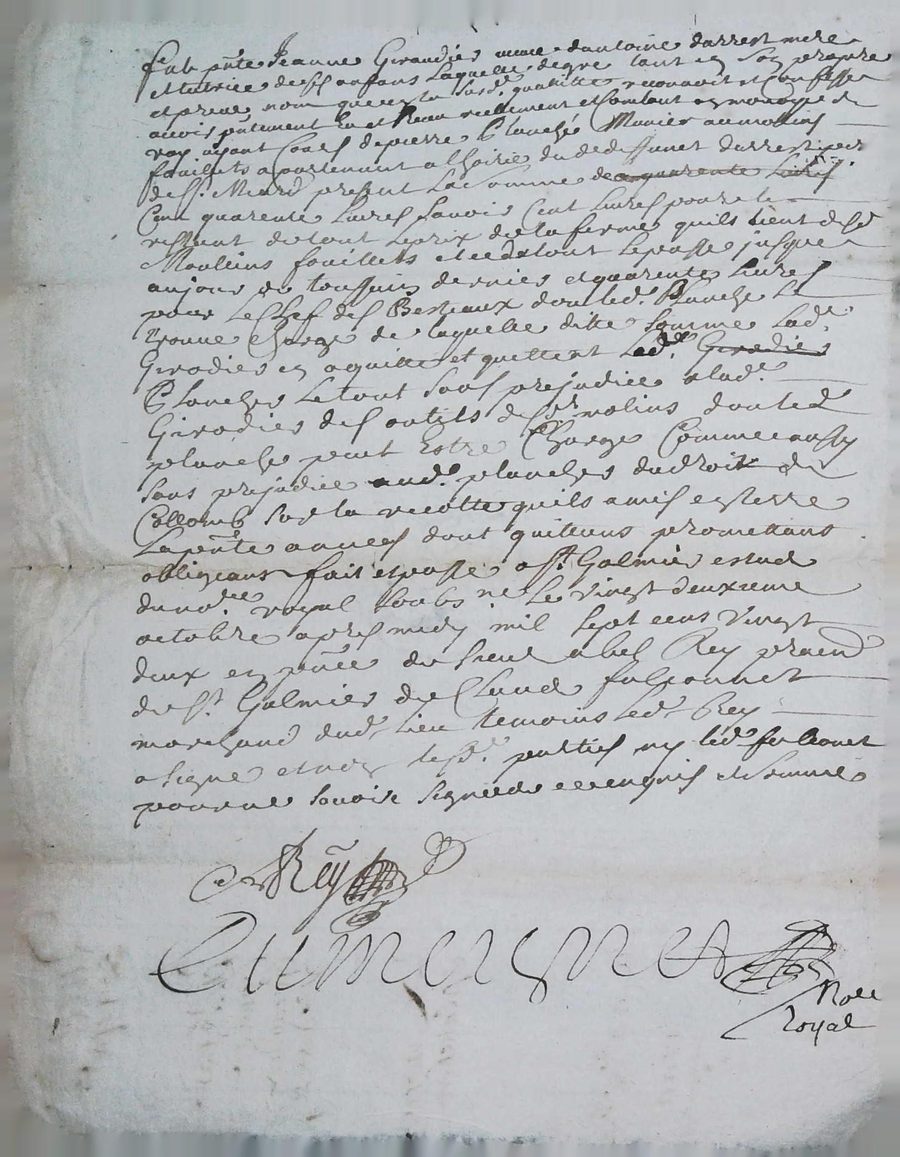 fut pnte Jeanne Giraudiés mere dantoine darrest mere
et tutrice de ses anfans laquelle de gre tant en son propre
et prive nom que en la susd. qualitte reconnoit et confesse
avoir pntement eu et Receu reellement et contant en monoye du
roy ayant cours de pierre Planche Munier au molins
fouillets apartenant a lhoirie du de deffunct darrest per
de St. Meard present La somme de quarente Livres
Cent quarente Livres savoir Cent Livres pour le
restant de tout le prix de la ferme quils tient desd
Moulins fouillets et ce de tout le passe jusque
aujour de toussains dernier et quarente Livres
pour le chef des Bestiaux dont led. Planche se
trouve charge de laquelle ditte somme Lad.
Girodies en a quitte et quittent led. Girodies
Planches Le tout sans prejudice a lad.
Girodies des outils desd. molins dont led
planche peut Estre Charge Comme aussy
sans prejudice aud. planches du droit de
Collomb sur la recolte quils a mis en terre
La pnte annees dont quittans promettans
obligeans fait et passe a St. Galmier estude
du no.re royal soubs.ne Le vingt deuxieme
octobre apres midy mil sept cens vingt
deux en pnce du sieur abel Rey praend
de St. Galmier de Claude falconnet
marchand dud. lieu temoins led. Rey
a signe et non lesd. parties ny led. falconet
pour ne savoir signer de ce enquis et somme
Rey
Not.e
royal